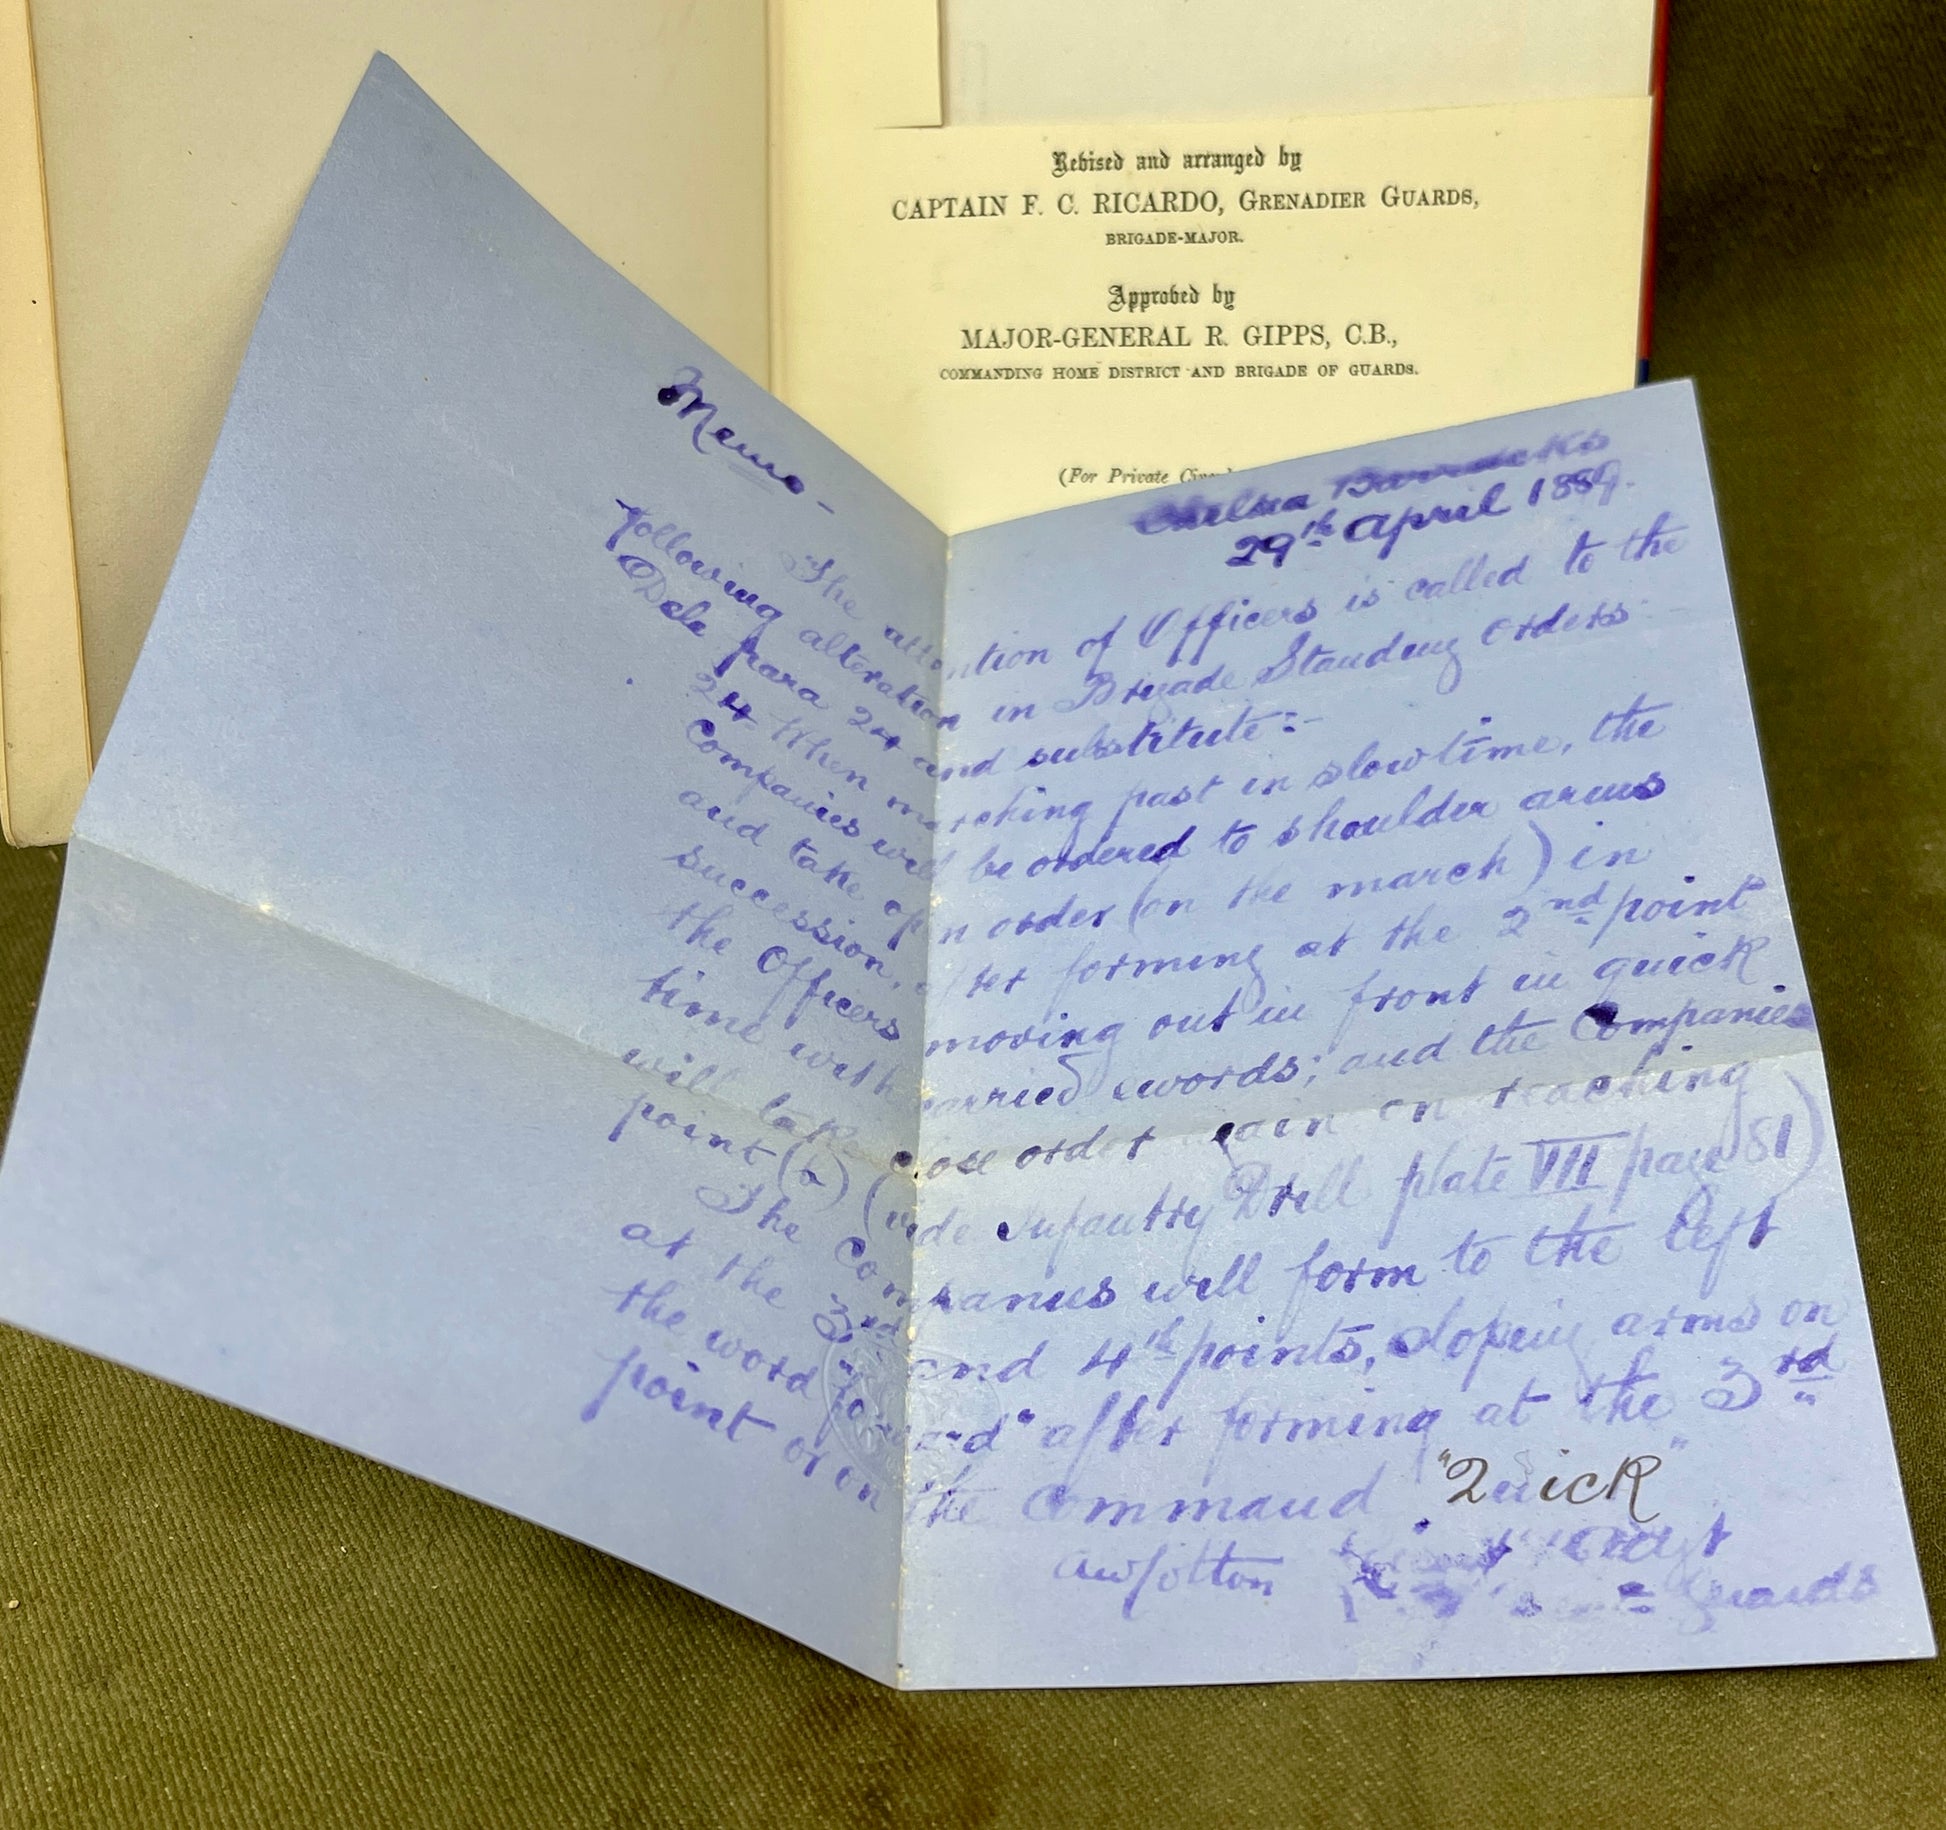 Revised and arranged by
CAPTAIN F. C. RICARDO, GRENADIER GUARDS,
BRIGADE-MAJOR.
Approved by
MAJOR-GENERAL R. GIPPS, C.B.,
COMMANDING HOME DISTRICT AND BRIGADE OF GUARDS.
(For Private
Chelsea Barracks
29th April 1889.
Memo-
The attention of Officers is called to the
following alteration in Brigade Standing Orders -
Dele para 24 and substitute:-
24 When marching past in slow time, the
Companies will be ordered to shoulder arms
and take open order (on the march) in
succession, after forming at the 2nd point
the Officers moving out in front in quick
time with carried swords; and the Companies
will take close order again on reaching
point (b) (vide Infantry Drill plate VIII page 81)
The Companies will form to the left
at the 3rd and 4th points, sloping arms on
the word forward" after forming at the 3rd
point or on the command "Quick"
Guards